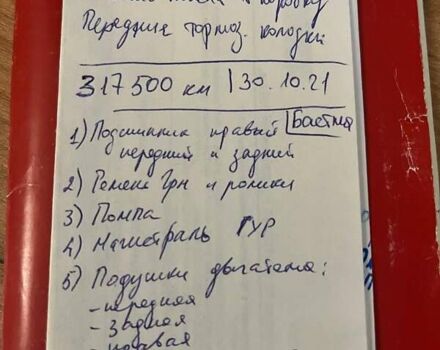 коробку
Передние тормоз. колодки
317 500 км | 30.10.21
1) Подшипник правый
передний и задний
2) Ремень Грм и ролики
3) Помпа
4) Магистраль ГУР
5) Подушки двигателя:
- передняя
- задняя
- правая